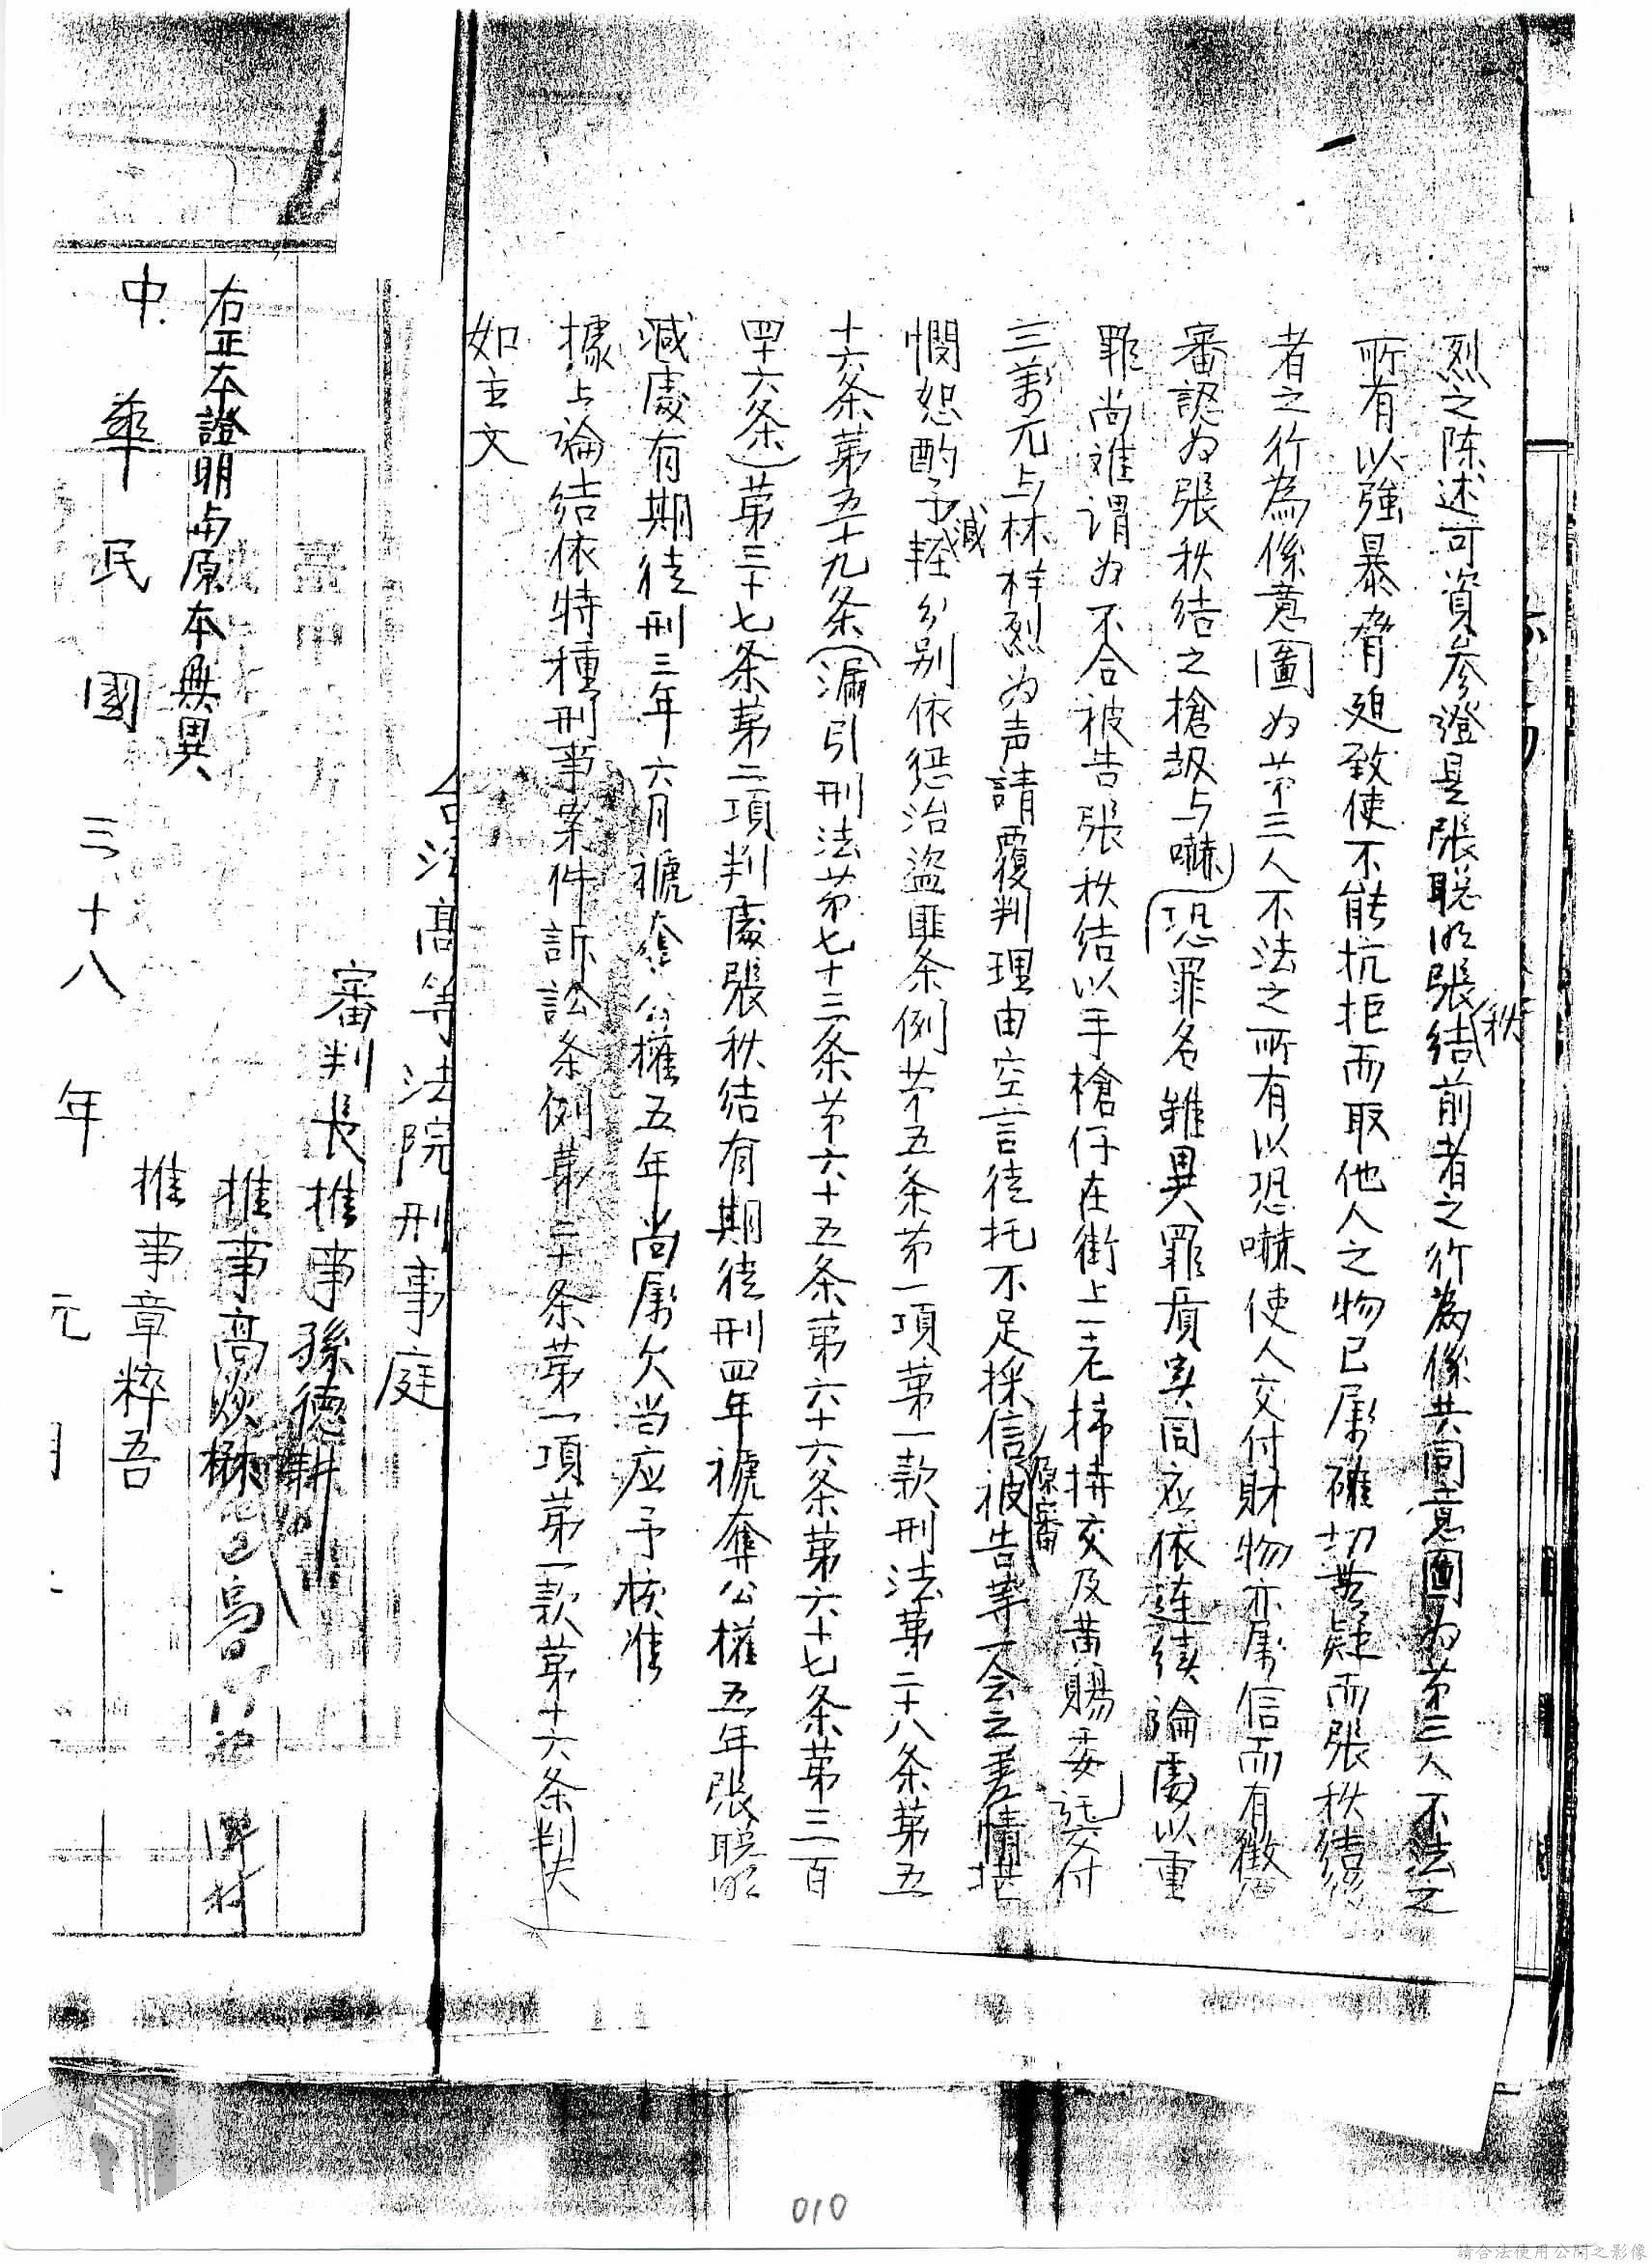 烈之陈述可資参證是張聡明張秩結前者之行為係共同意圖为第三人不法之
所有以強暴脅廹致使不能抗拒而取他人之物已屬確切無疑而張秩結後
者之行為係意圖为第三人不法之所有以恐嚇使人交付財物亦屬信而有徵
審認为張秩結之槍刼与嚇恐罪名雖異罪質实同应依連續論處以重
罪尚难谓为不合被告張秩結以手槍仔在街上老掃拼交及黄賜委託交付
三萬元与林样烈为声請覆判理由空言徒托不足採信原審被告等一念之差情堪
憫恕酌予減輕分别依惩治盜匪条例第五条第一項第一款刑法第二十八条第五
十六条第五十九条(漏引刑法第七十三条第六十五条第六十六条第六十七条第三百
四十六条)第三十七条第二項判處張秩結有期徒刑四年褫奪公權五年張聡明
減處有期徒刑三年六月褫奪公權五年尚屬允当应予核准
據上論结依特種刑事案件訴訟条例第二十条第一項第一款第十六条判决
如主文
台湾高等法院刑事庭
審判長推事孫德耕
推事高
推事章粹吾
右正本證明与原本無異
中華民國三十八年元月
010
請合法使用公開之影像